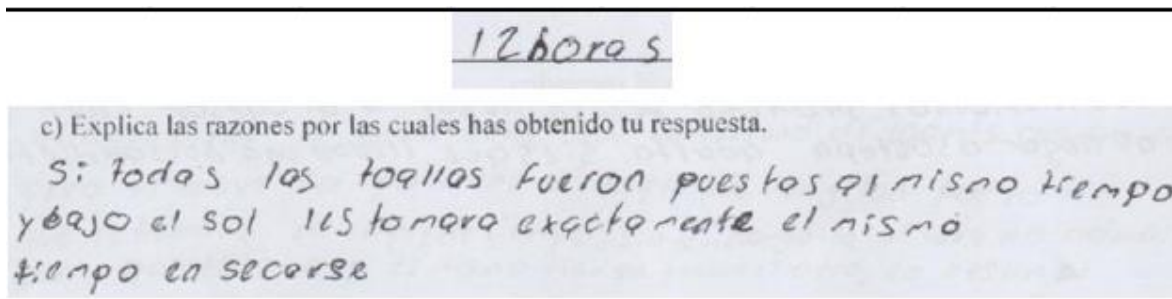 12horas
c) Explica las razones por las cuales has obtenido tu respuesta.
Si todas las toallas fueron puestas al mismo tiempo
y bajo el sol les tomara exactamente el mismo
tiempo en secarse